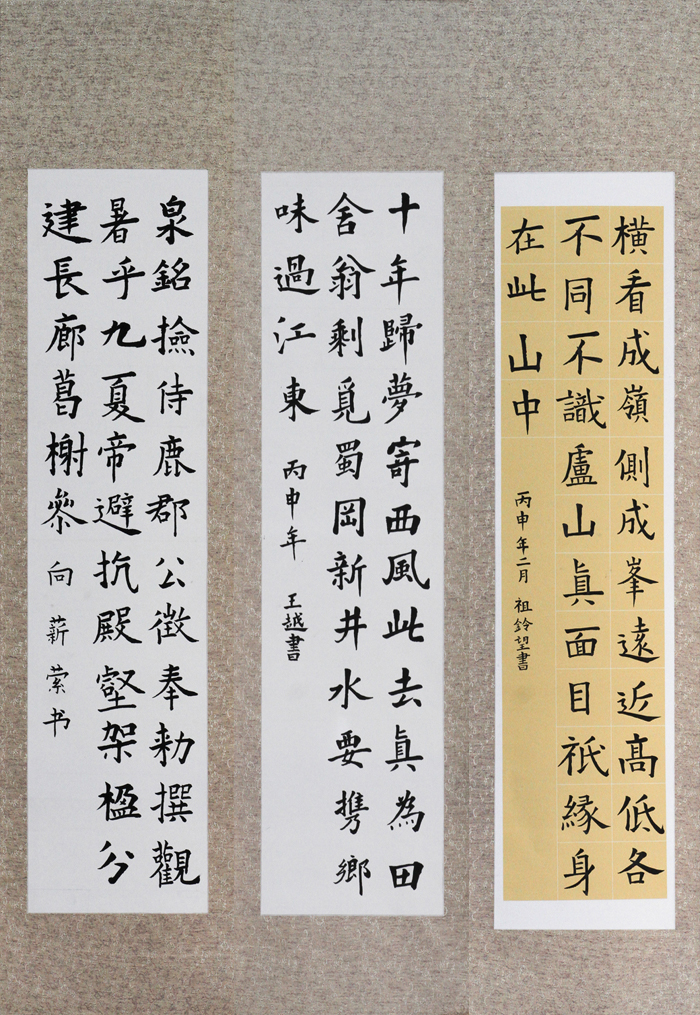 横看成嶺側成峯遠近高低各
不同不識盧山眞面目衹緣身
在此山中
丙申年二月 祖鈴望書
十年歸夢寄西風此去眞為田
舍翁剩覓蜀岡新井水要携鄉
味過江東
丙申年 王越書
泉銘撿侍鹿郡公徵奉勑撰觀
暑乎九夏帝避抗殿壑架楹分
建長廊葛榭叅
向薪萦书